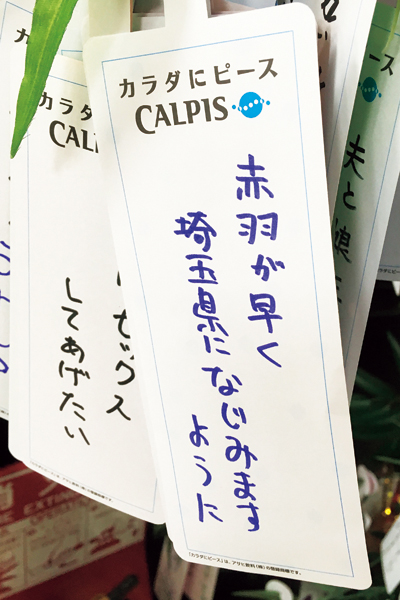 カラダにピース
CALPIS
赤羽が早く
埼玉県になじみます
ように
「カラダにピース」は、アサヒ飲料(株)の登録商標です。
カラ
CALPI
セックス
してあげたい
ピース
夫と娘